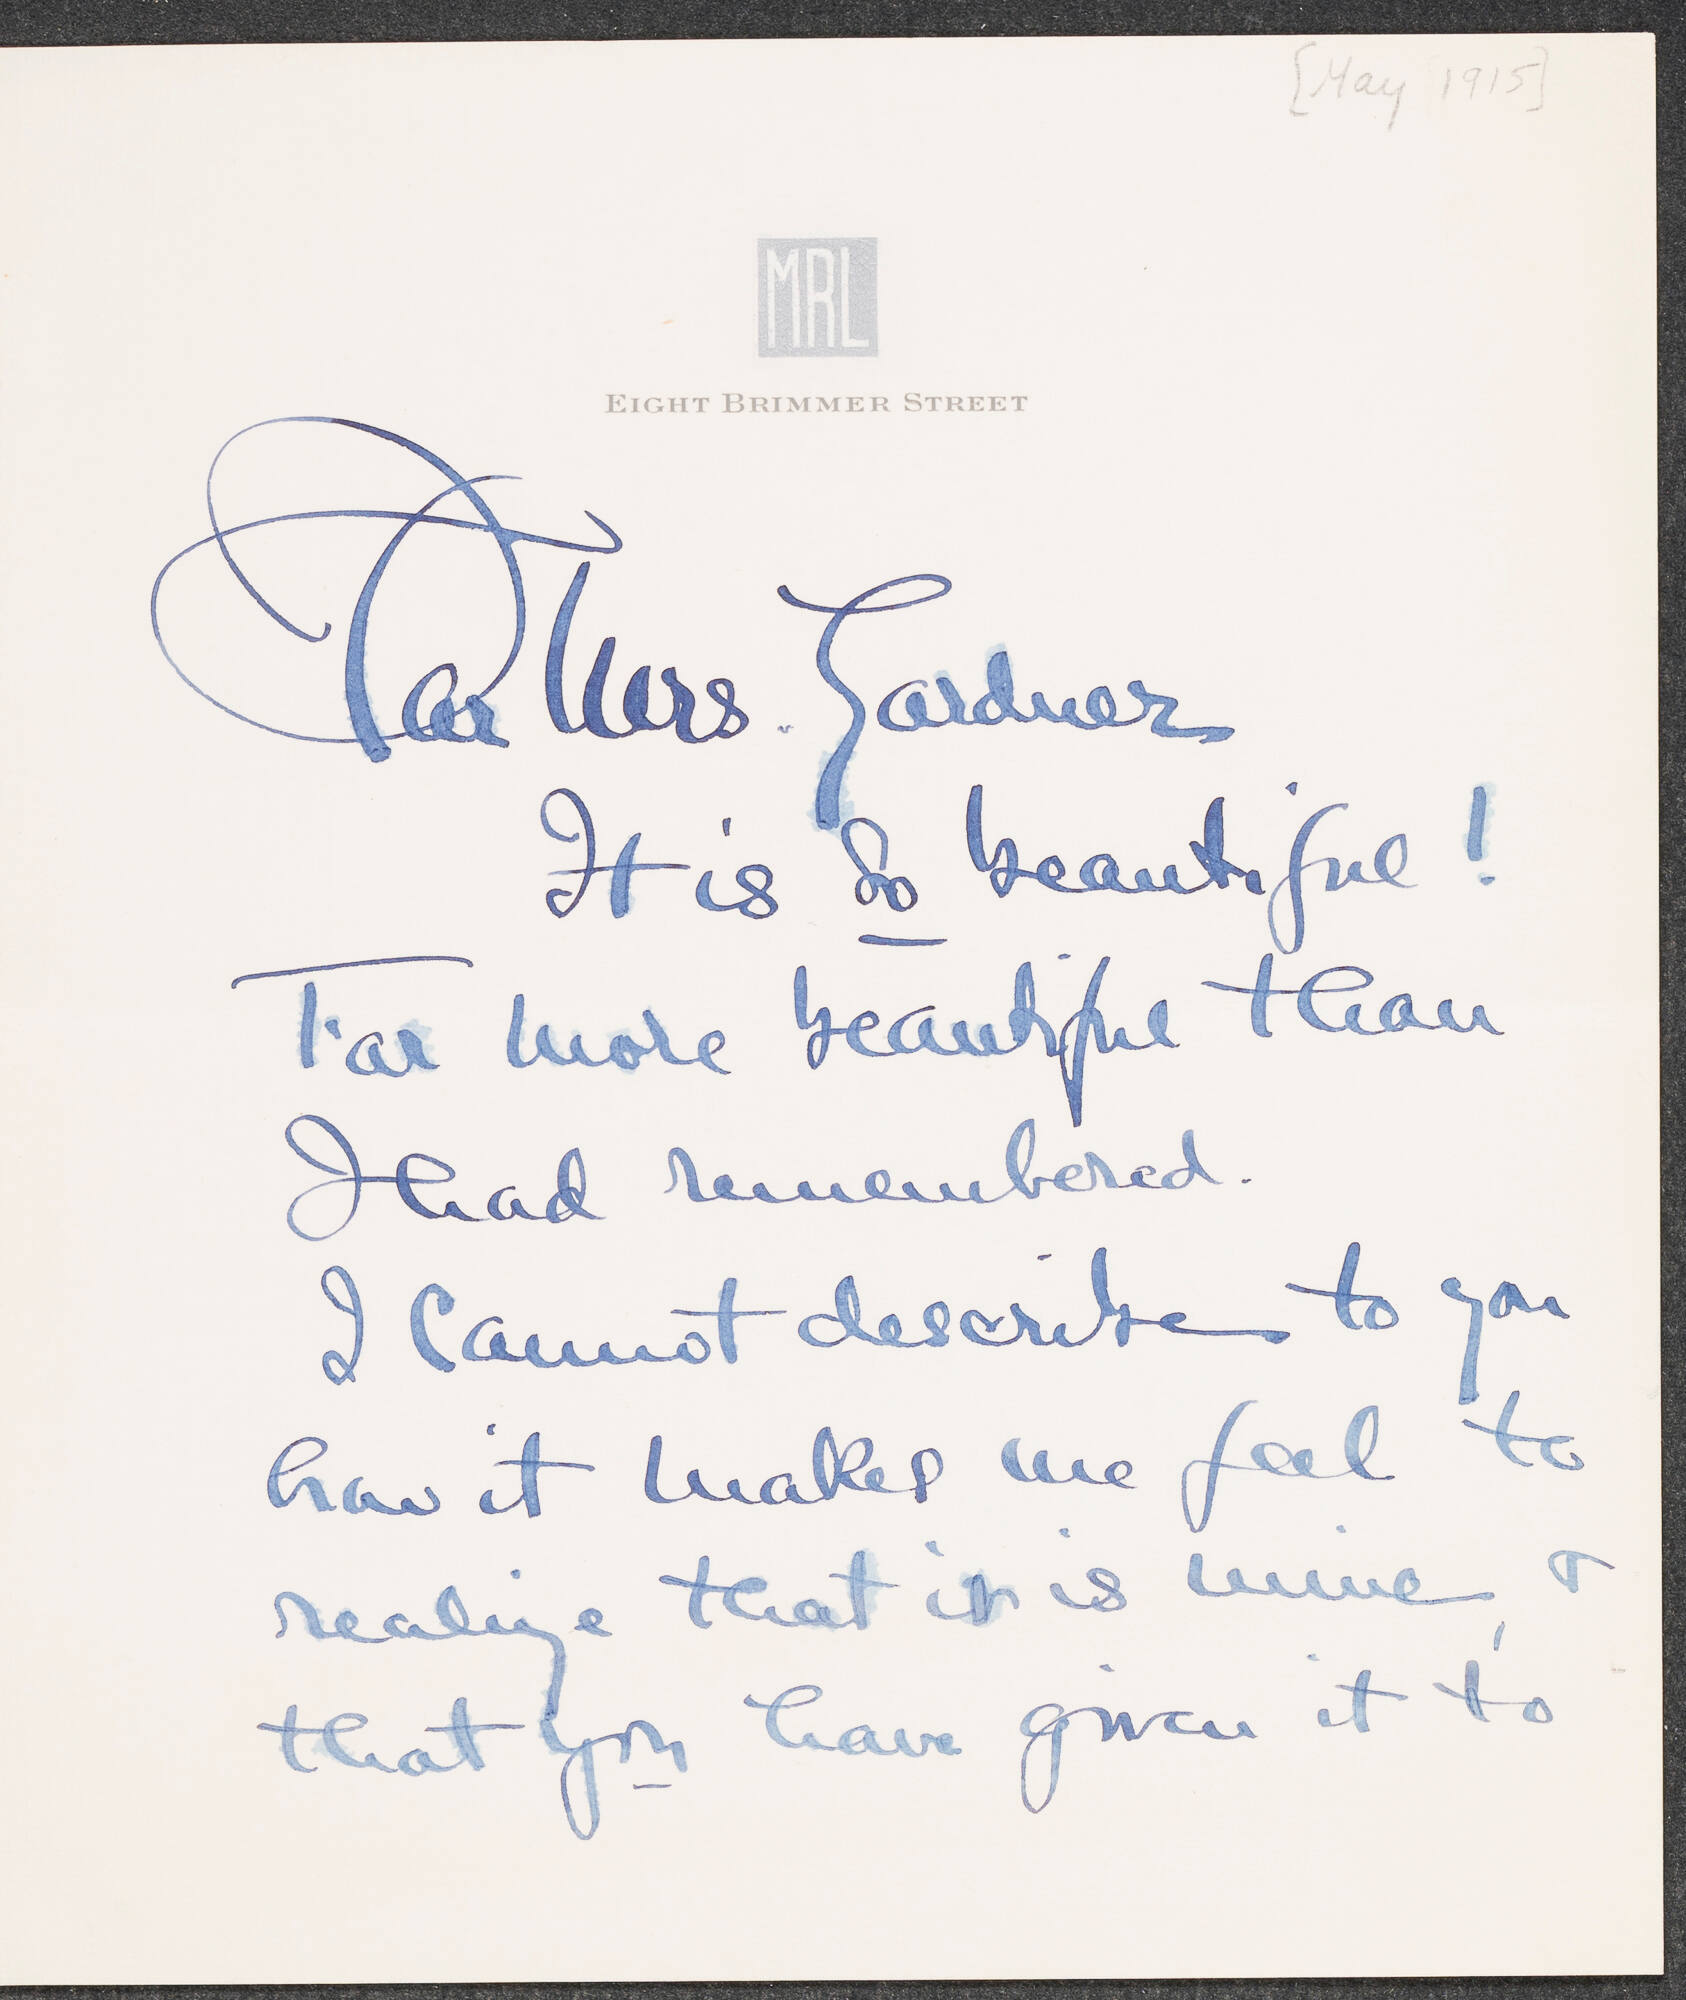 [May 1915]
MRL
EIGHT BRIMMER STREET
Dear Mrs. Gardner
It is so beautiful!
Far more beautiful than
I had remembered.
I cannot describe to you
how it makes me feel to
realize that it is mine, &
that you have given it to